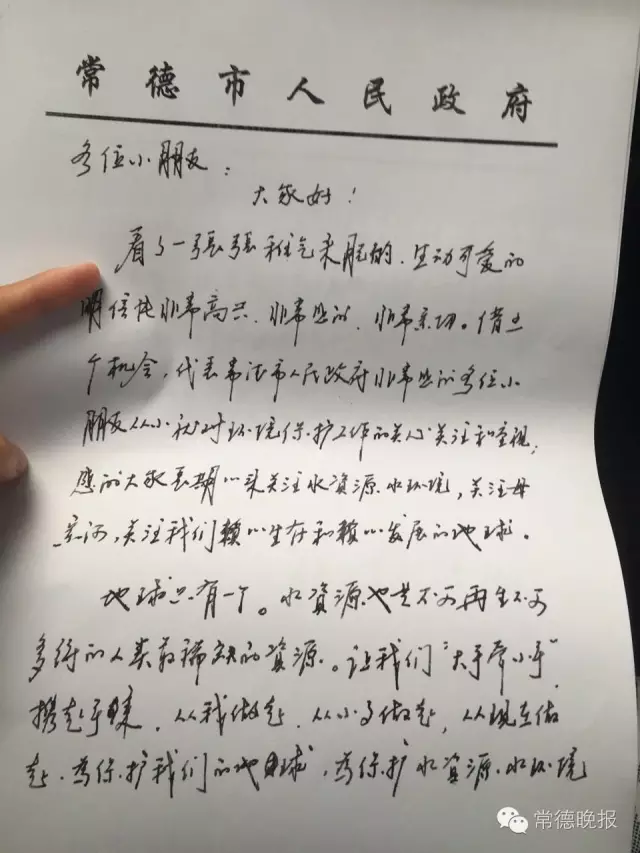 常德市人民政府
各位小朋友：
大家好！
看了一张张稚气未脱的、生动可爱的
明信片非常高兴、非常感动、非常亲切。借这
个机会，代表常德市人民政府非常感谢各位小
朋友从小就对环境保护工作的关心关注和重视，
感谢大家长期以来关注水资源水环境，关注母
亲河，关注我们赖以生存和赖以发展的地球。
地球只有一个。水资源也是不可再生不可
多得的人类最稀缺的资源。让我们“大手牵小手”
携起手来，从我做起、从小事做起，从现在做
起、为保护我们的地球，为保护水资源水环境
常德晚报